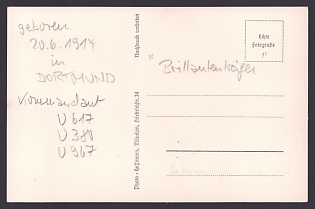 geboren
20.6.1914
in
DORTMUND
Kommandant
U 617
U 380
U 967
Nachdruck verboten
Photo - Hoffmann, München, Friedrichstr. 34
Brillantenträger
Echte
Fotografie